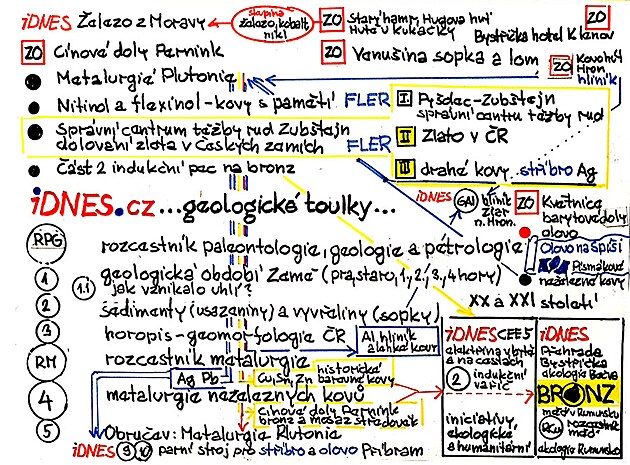 iDNES Železo z Moravy
skupina
železo, kobalt
nikl
ZO Starý hamr, Hugova huť
ZO
Bystřička hotel Klenov
ZO Cínové doly Pernink
ZO Venušina sopka a lom
ZO Kovohuť
Hron.
hliník
Metalurgie Plutonie
Nitinol a flexinol - kovy s pamětí FLER
Správní centrum těžby rud Zubštejn
dolování zlata v Českých zemích FLER
I Pyšolec-Zubštejn
správní centru těžby rud
II Zlato v ČR
III drahé kovy stříbro Ag
Část 2 indukční pec na bronz
iDNES.cz ...geologické toulky...
iDNES GAI hliník
Žiar
n. Hron.
ZO Květnice
barytové doly
olovo
Olovo na Spiši
Písmákové
neželezné kovy
XX a XXI
století
RPG rozcestník paleontologie, geologie a petrologie
1 1.1 geologická období Země (pra, staro, 1, 2, 3, 4 hory)
jak vznikalo uhlí?
2 sedimenty (usazeniny) a vyvřeliny (sopky)
3 horopis - geomorfologie ČR
Al, hliník
a lehké kovy
RM rozcestník metalurgie
Ag Pb
Cu, Sn, Zn historické
barevné kovy
4 metalurgie neželezných kovů
cínové doly Pernink
bronz a mosaz středověk
5 Obručav: Metalurgie Plutonie
iDNES 9 10 parní stroj pro stříbro a olovo Příbram
iDNES CEE5
elektřina vbytě
a na cestách
2 indukční
vařič
iniciativy,
ekologické
a humanitární
iDNES
Přehrada
Bystřička
ekologie Bečva
BRONZ
měď v Rumunsku
RCu Rozcestník
měď
ekologie Rumunsko